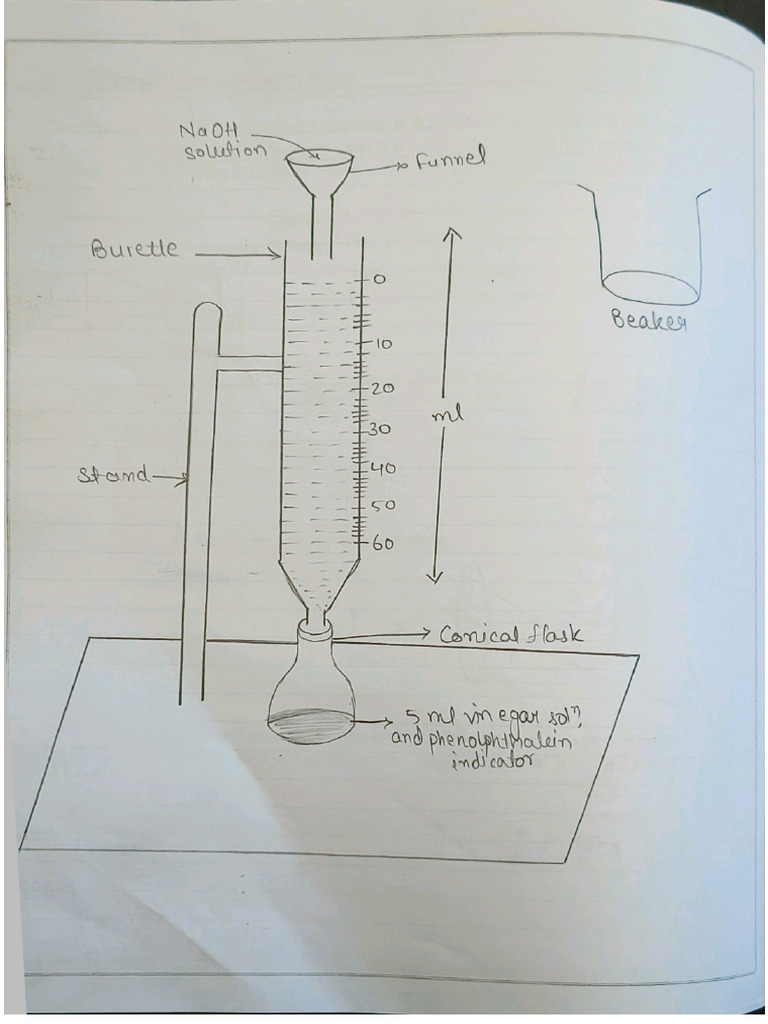 NaOH
solution
funnel
Burette
0
10
20
30
40
50
60
ml
Beaker
Stand
Conical flask
5 ml vinegar solⁿ,
and phenolphthalein
indicator